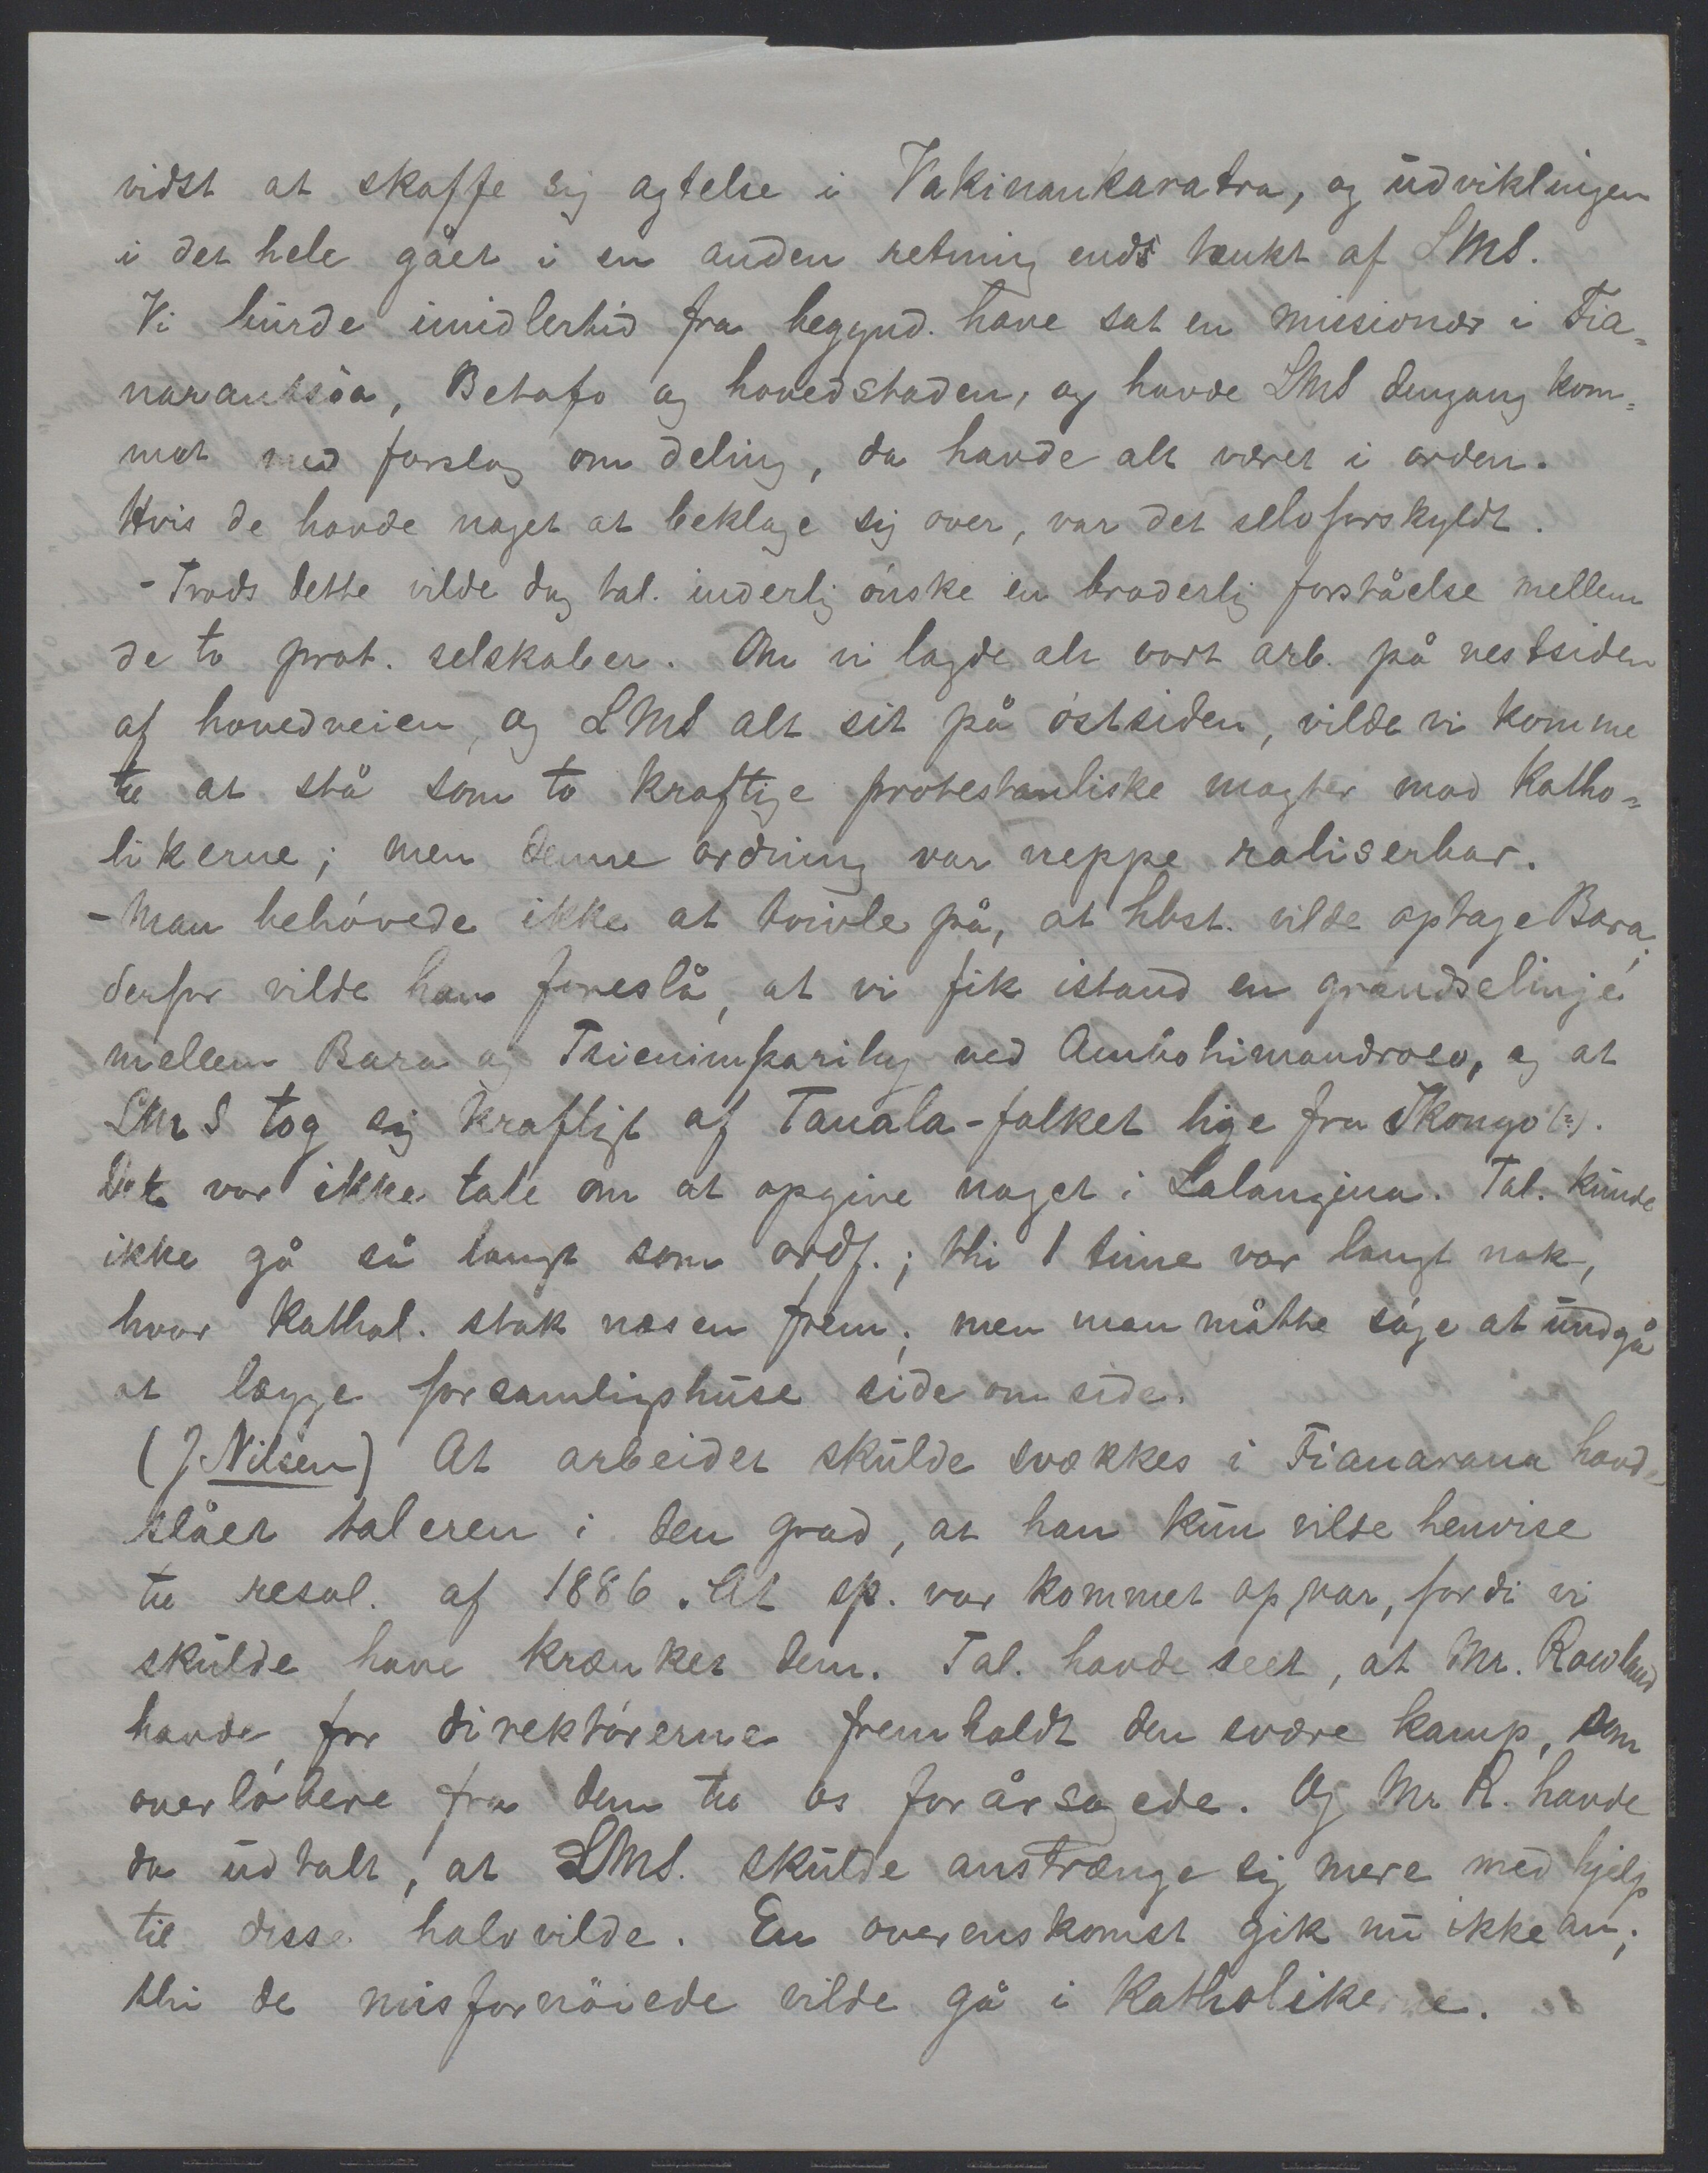 vidst at skaffe sig agtelse i Vakinankaratra, og udviklingen
i det hele gået i en anden retning ends tænkt af LMS.
Vi burde imidlertid fra begynd. have sat en missionær i Fia=
narantsoa, Betafo og hovedstaden, og havde LMS dengang kom=
met med forslag om deling, da havde alt været i orden.
Hvis de havde noget at beklage sig over, var det selvforskyldt.
- Trods dette vilde dog tal. inderlig ønske en broderlig forståelse mellem
de to prot. selskaber. Om vi lagde alt vort arb. på vestsiden
af hovedveien, og LMS alt sit på østsiden, vilde vi komme
til at stå som to kraftige protestantiske magter mod Katho=
likerne; men denne ordning var neppe raliserbar.
- Man behøvede ikke at tvivle på, at hbst. vilde optage Bara;
derfor vilde han foreslå, at vi fik istand en grændselinje
mellem Bara og Tsienimparihy ved Ambohimandroso, og at
LMS tog sig kraftigt af Tanala-folket lige fra Ikongo (?).
Det var ikke tale om at opgive noget i Lalangina. Tal. kunde
ikke gå så langt som ordf.; thi 1 time var langt nok,
hvor Kathol. stak næsen frem; men man måtte søge at undgå
at lægge forsamlingshuse side om side.
(J. Nilsen) At arbeidet skulde svækkes i Fianarana havde
slået taleren i den grad, at han kun vilde henvise
til resol. af 1886. At sp. var kommet op, var, fordi vi
skulde have krænket dem. Tal. havde seet, at Mr. Rowland
havde for direktørerne fremholdt den svære kamp, som
overløbere fra dem til os forårsagede. Og Mr R. havde
da udtalt, at LMS. skulde anstrænge sig mere med hjelp
til disse halvvilde. En overenskomst gik nu ikke an;
thi de misfornøiede vilde gå i Katholikerne.